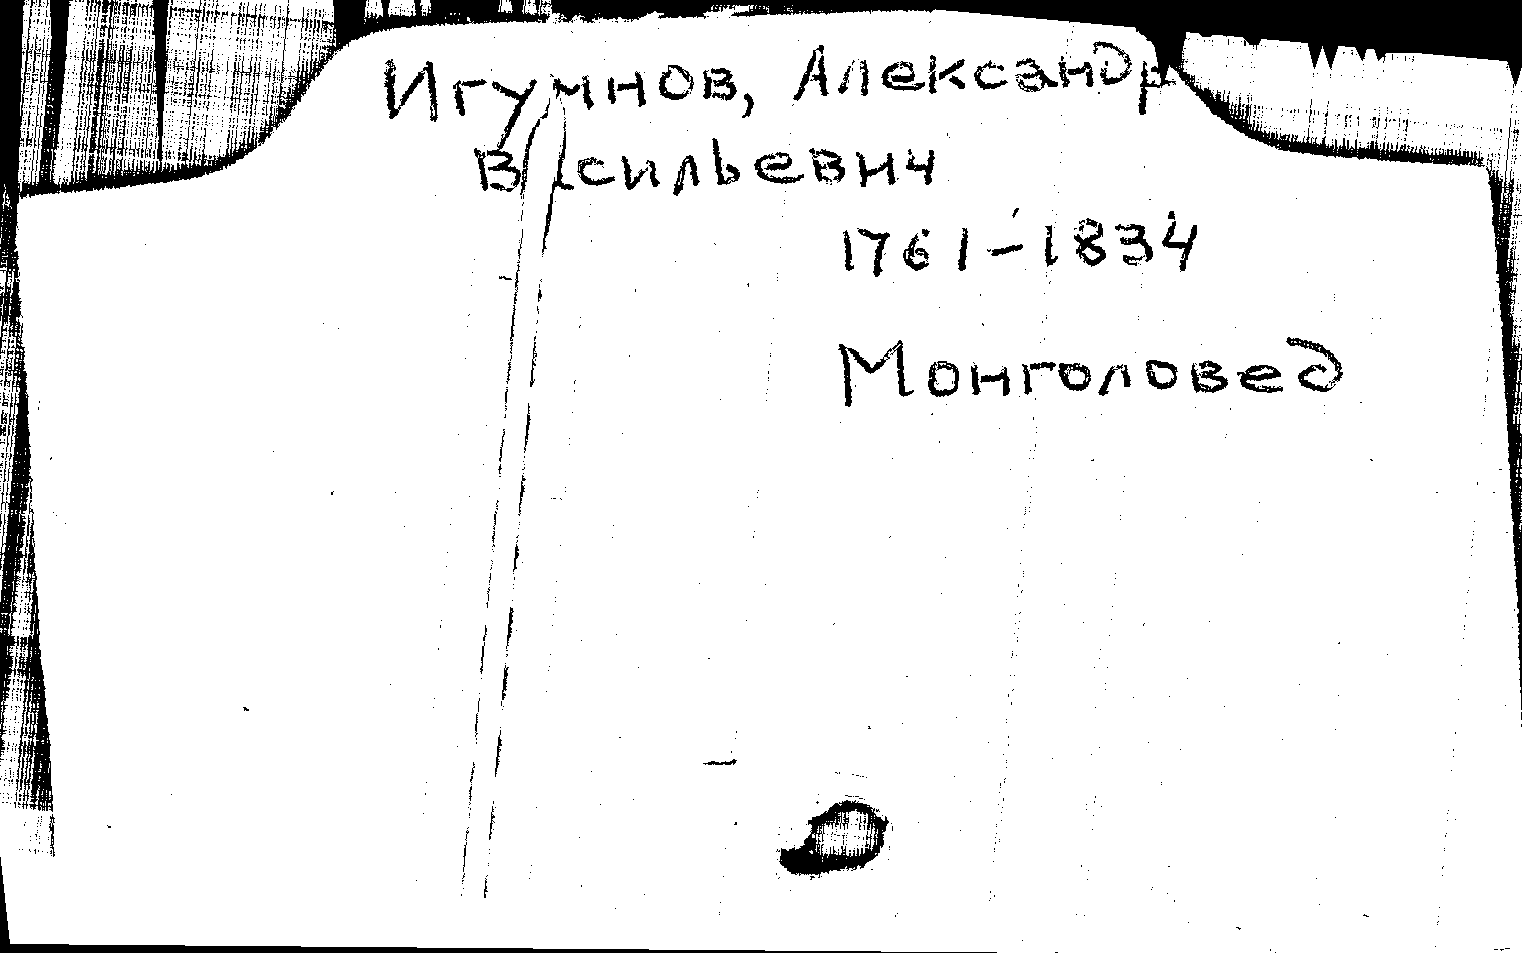 Игумнов, Александр
Васильевич
1761-1834
Монголовед